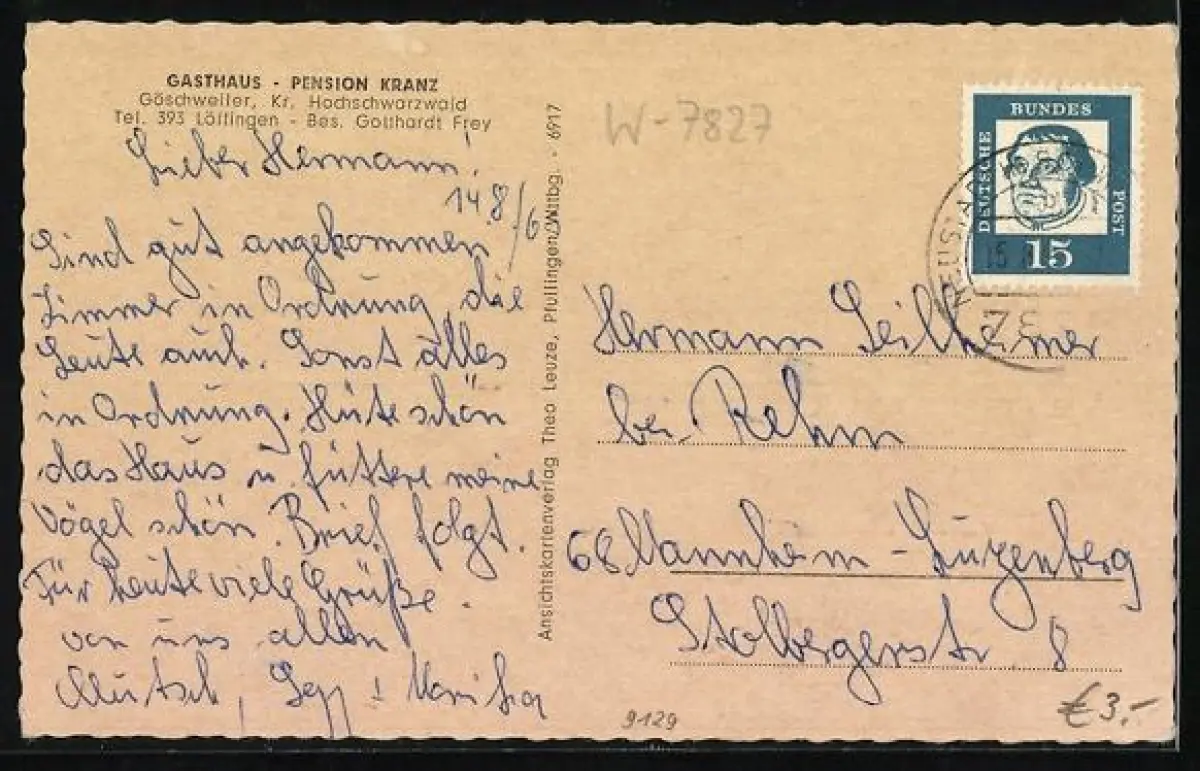 GASTHAUS - PENSION KRANZ
Göschweiler, Kr. Hochschwarzwald
Tel. 393 Löffingen - Bes. Gotthardt Frey
Lieber Hermann!
14 8/6
Sind gut angekommen
Zimmer in Ordnung, die
Leute auch. Sonst alles
in Ordnung. Hüte schön
das Haus u. füttere meine
Vögel schön. Brief folgt.
Für heute viele Grüße.
von uns allen
Sepp
Ansichtskartenverlag Theo Leuze, Pfullingen/Wttbg. - 6917
W-7827
DEUTSCHE BUNDES POST
15
NEUSTADT
Hermann Seilheimer
bei Rehm
68 Mannheim - Luzenberg
Stolbergerstr 8
9129
€3.-